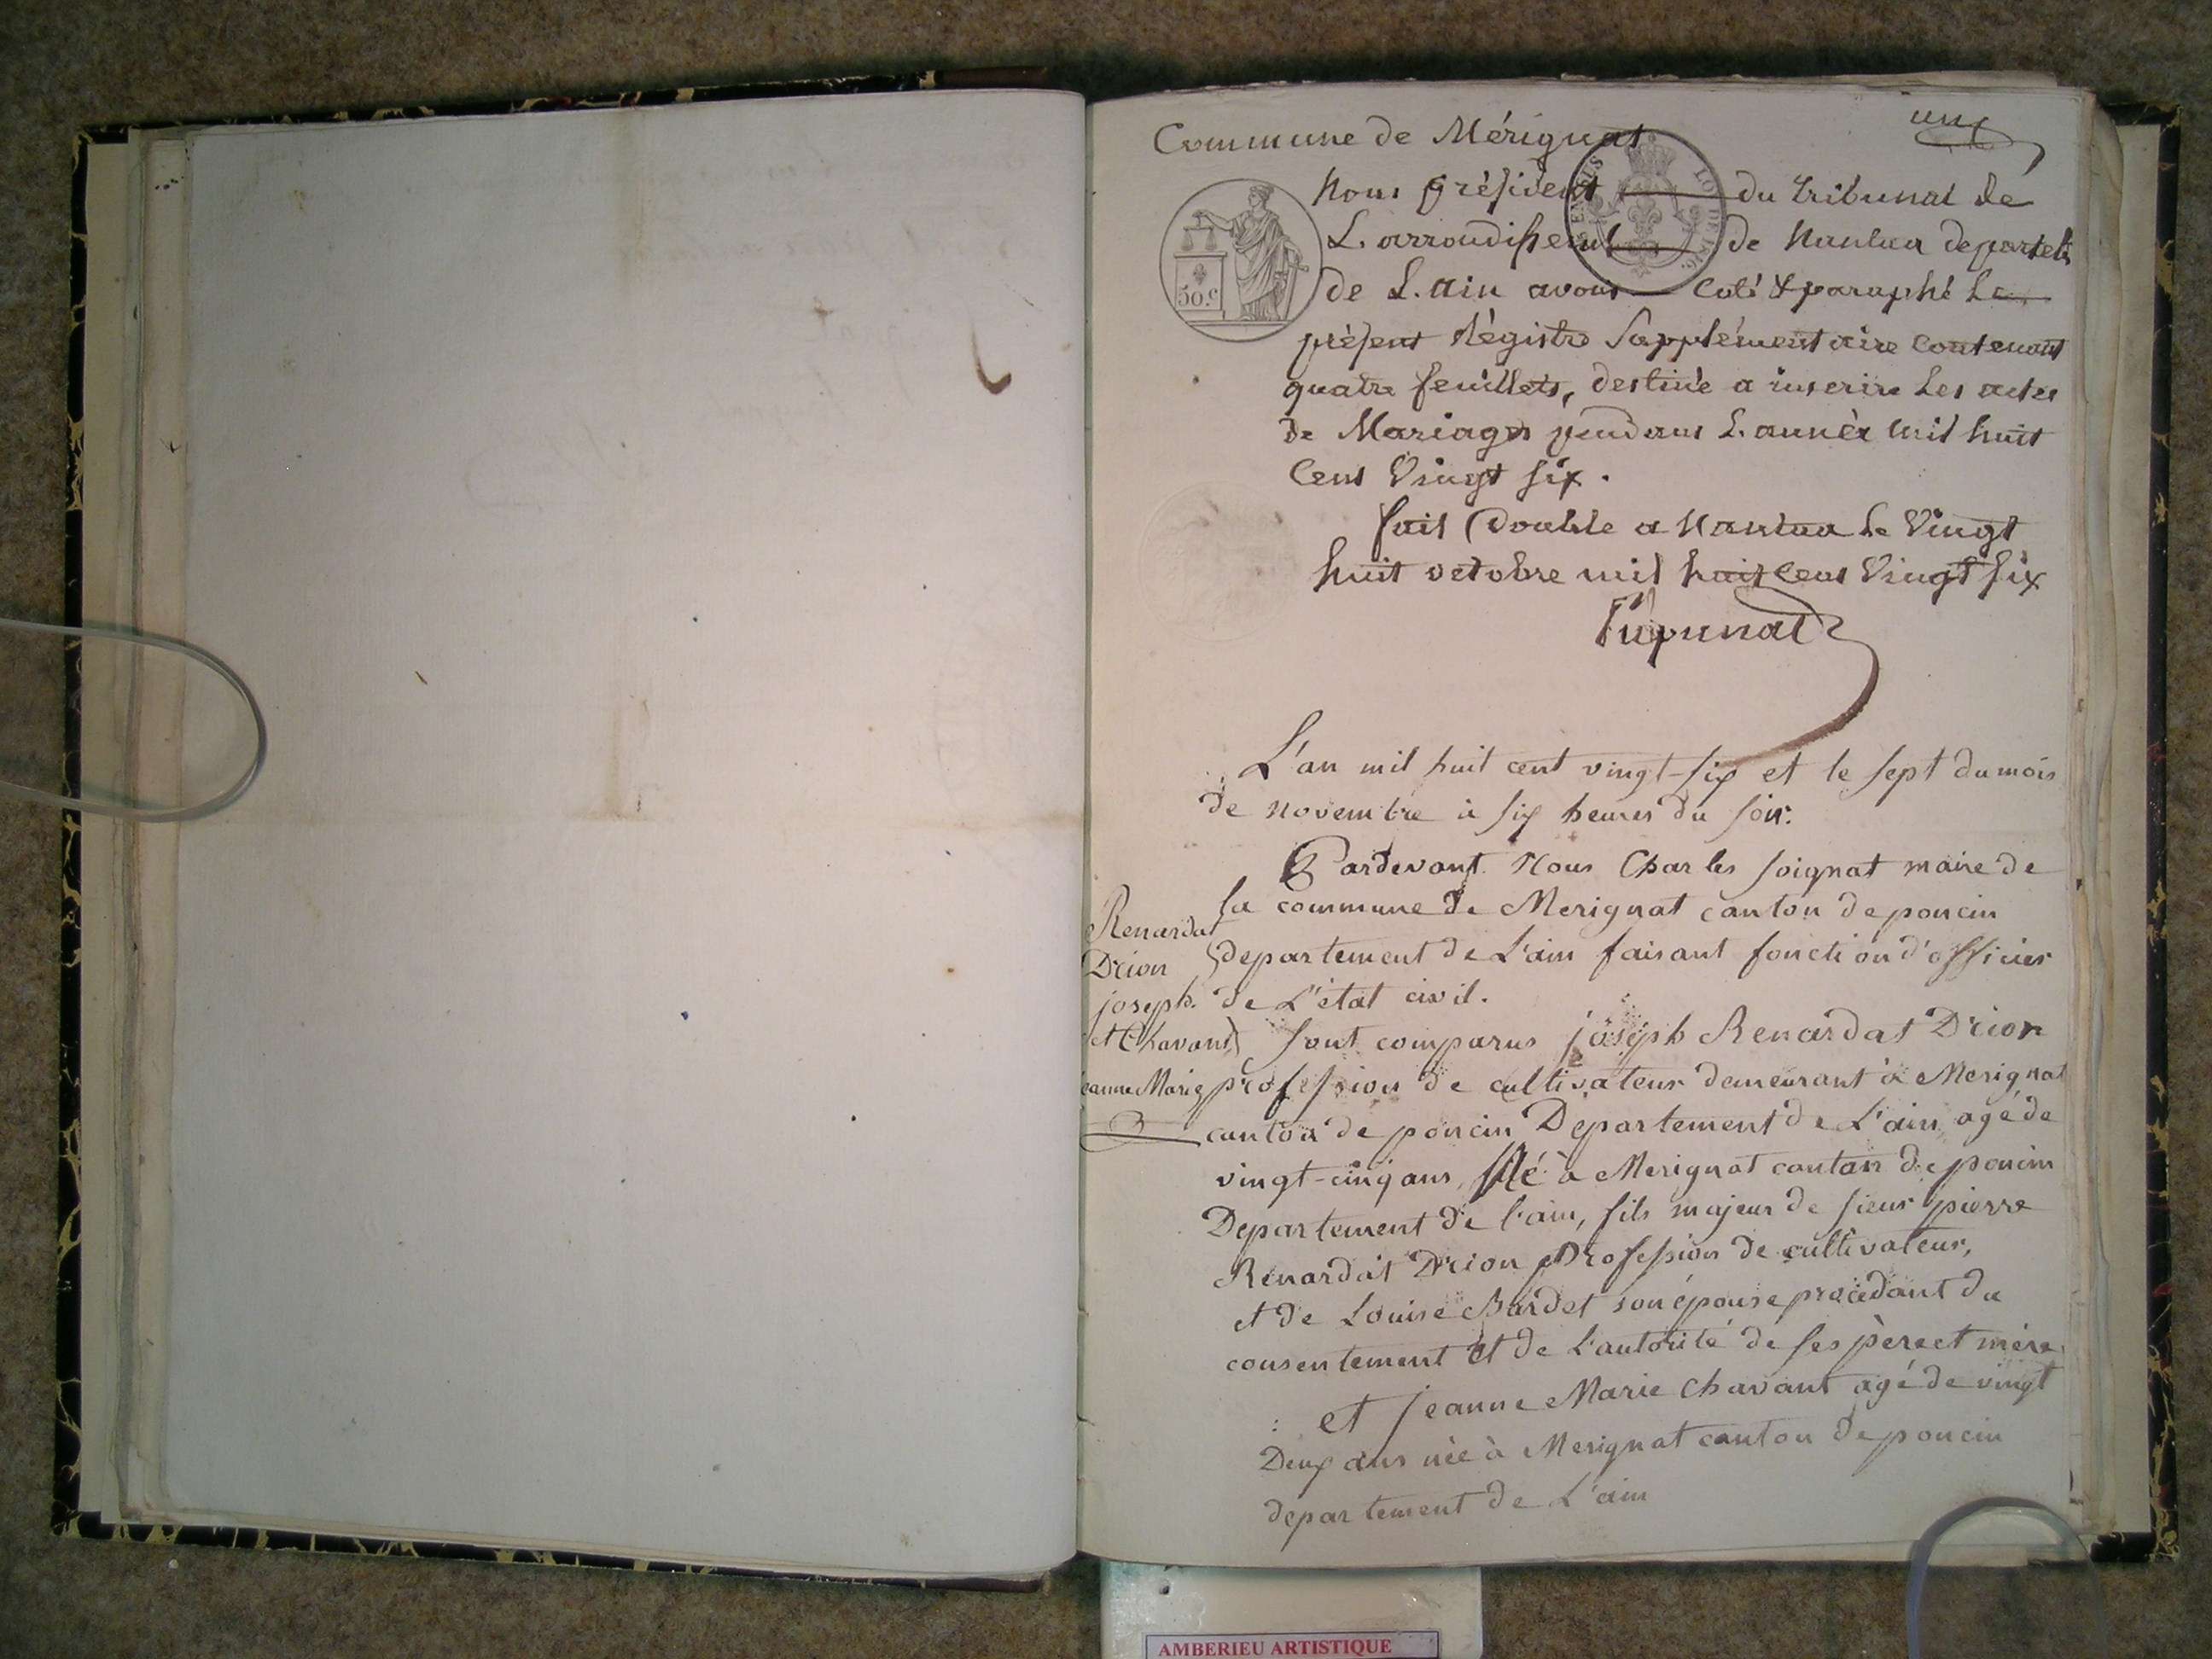 Commune de Mérignat
une
Nous président du tribunal de
50.c
L. arrondissemt de Nantua departet
de L. Ain avons Coté & paraphé Le
présent Régistre Supplémentaire Contenant
quatre feuillets, destiné a inscrire Les actes
de Mariages pendant L. année mil huit
Cent Vingt six.
fait Double a Nantua le Vingt
huit octobre mil huit Cent Vingt six
L'an mil huit cent vingt-six et le sept du mois
de novembre à six heures du soir.
Pardevant Nous Charles soignat maire de
la commune de Merignat canton de poncin
departement de L'ain faisant fonction d'officier
de L'état civil.
Renardat
Drion
joseph.
et Chavant
jeanne Marie
sont comparus joseph Renardat Drion
profession de cultivateur demeurant à Merignat
canton de poncin Departement de L'ain agé de
vingt-cinq ans, né à Merignat canton de poncin
Departement de l'ain, fils majeur de sieur pierre
Renardat Drion profession de cultivateur,
et de Louise Bardet son épouse procedant du
consentement et de l'autorité de ses père et mère.
et jeanne Marie Chavant agé de vingt
Deux ans née à Merignat canton de poncin
departement de L'ain
AMBERIEU ARTISTIQUE